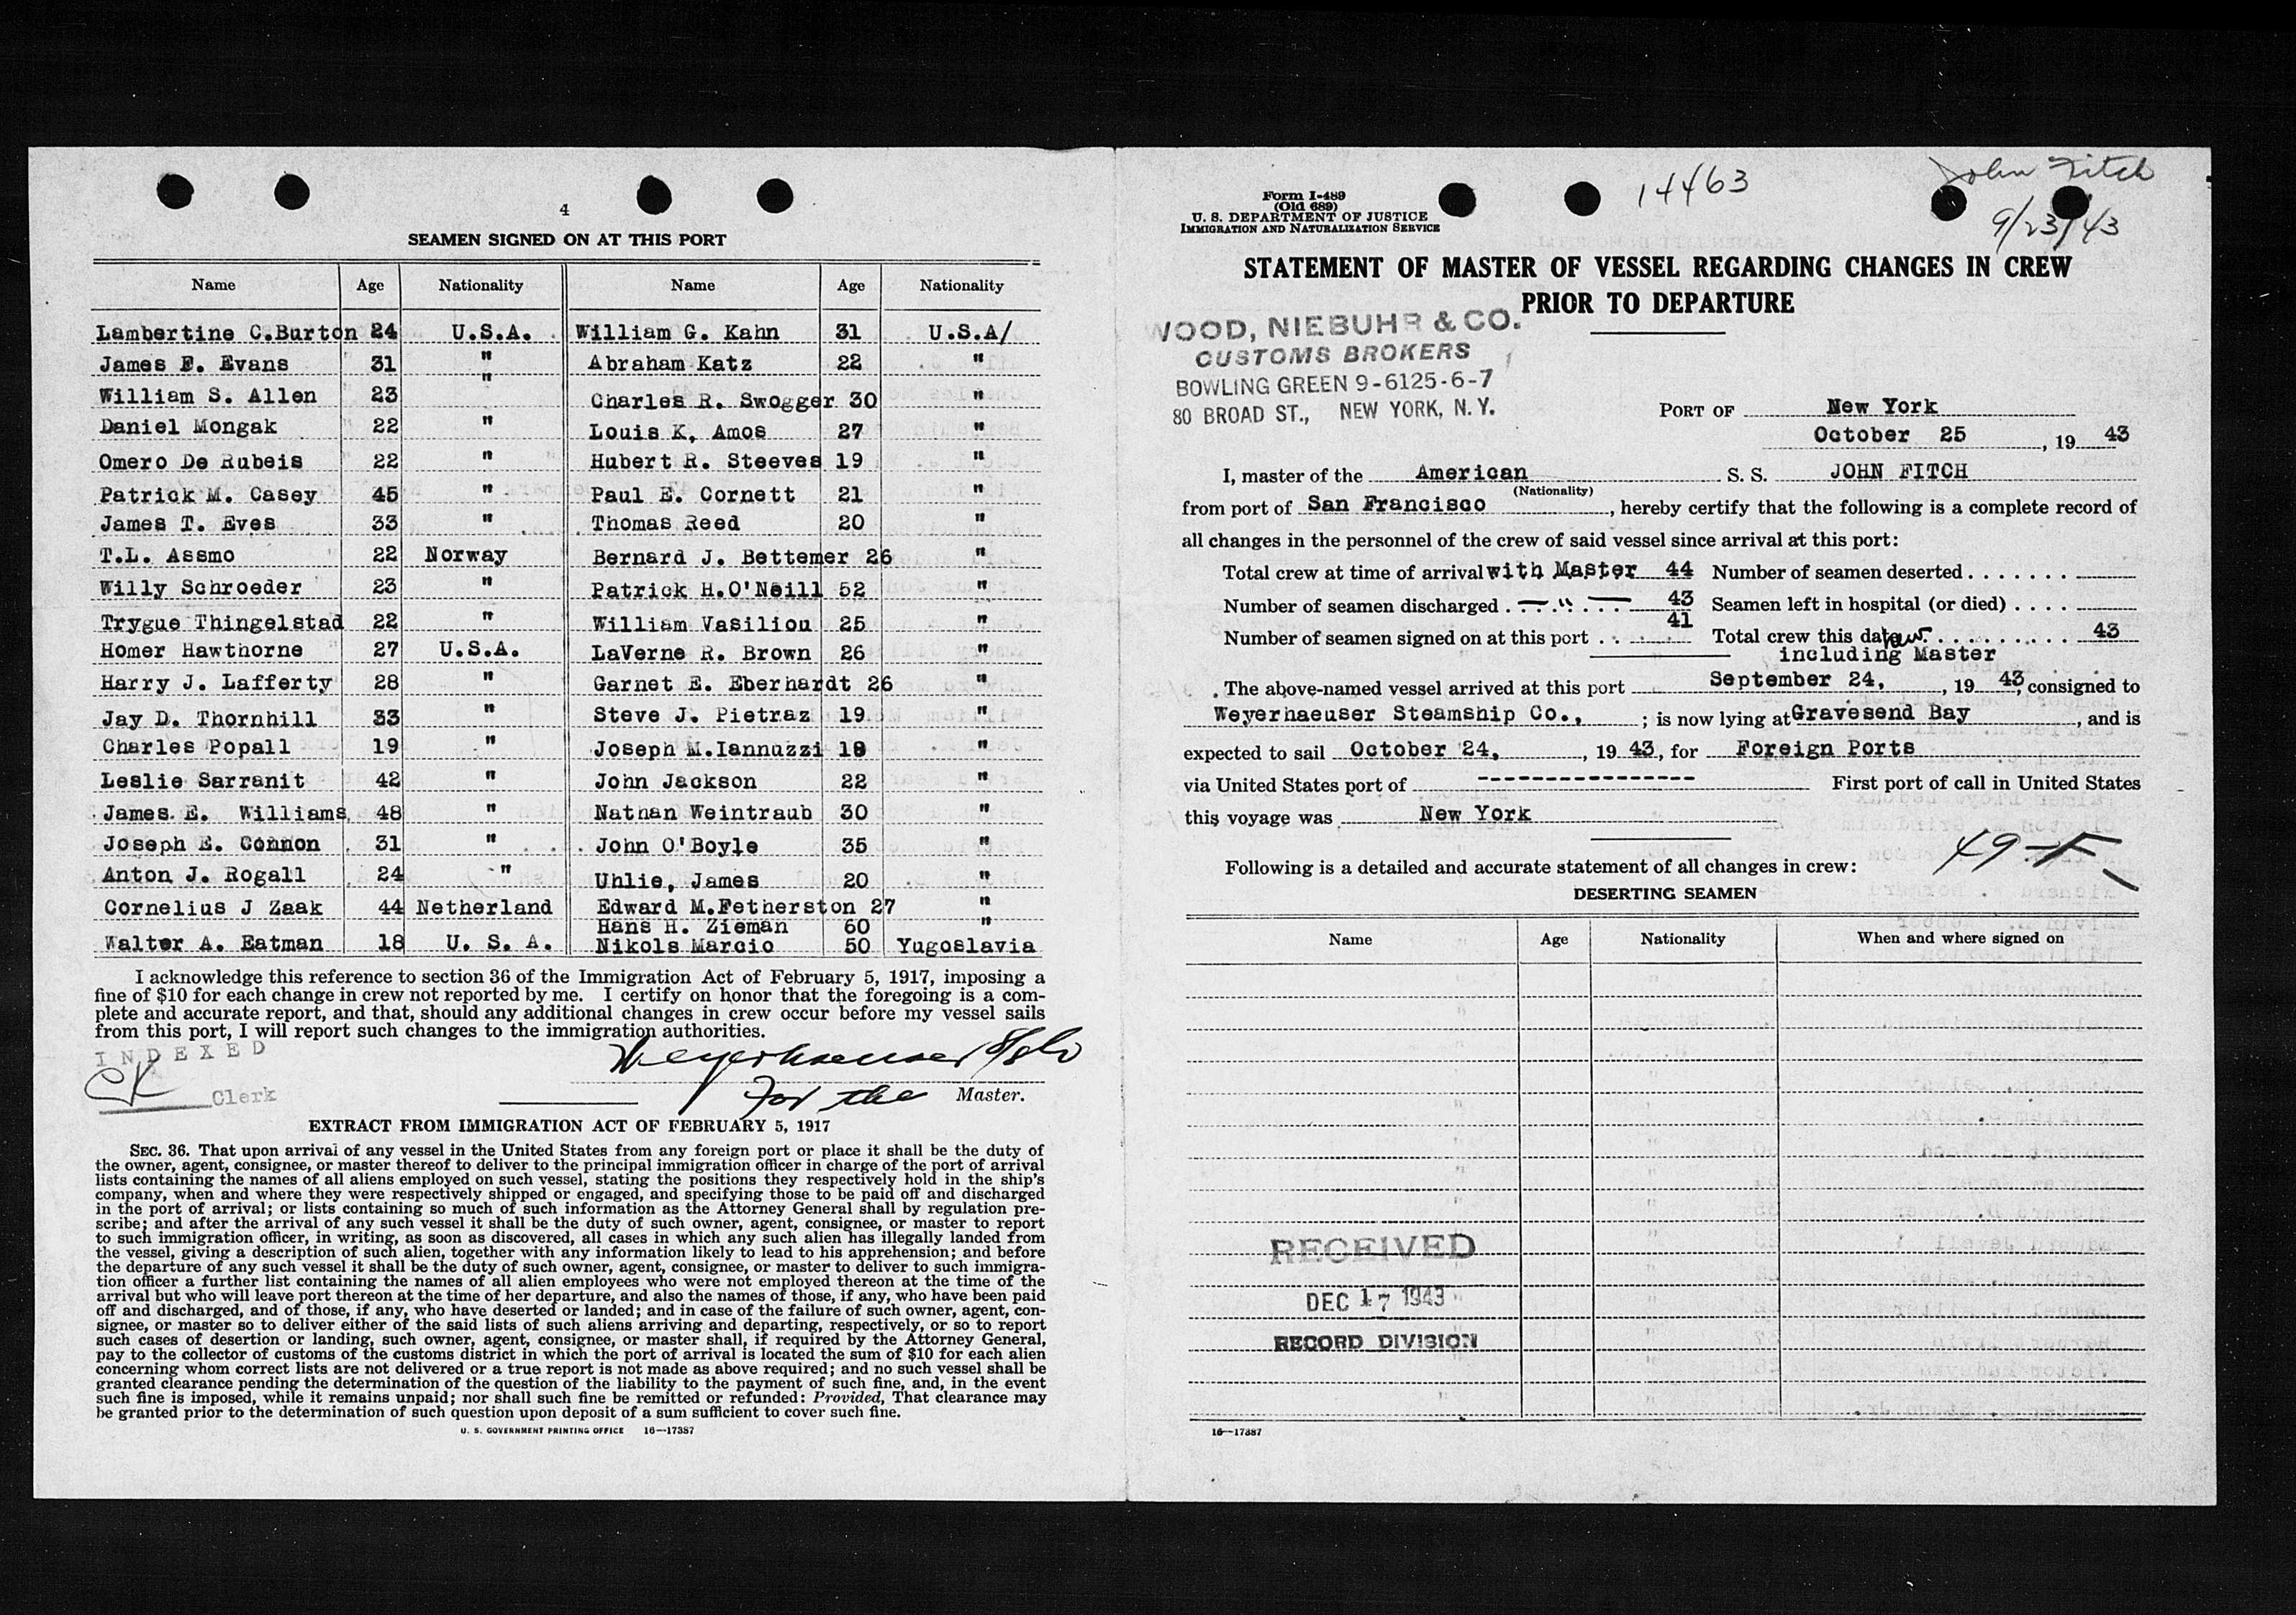 4
SEAMEN SIGNED ON AT THIS PORT
Name Age Nationality Name Age Nationality
Lambertine C.Burton 24 U.S.A. William G. Kahn 31 U.S.A/
James F. Evans 31 " Abraham Katz 22 "
William S. Allen 23 " Charles R. Swogger 30 "
Daniel Mongak 22 " Louis K, Amos 27 "
Omero De Rubeis 22 " Hubert R. Steeves 19 "
Patrick M. Casey 45 " Paul E. Cornett 21 "
James T. Eves 33 " Thomas Reed 20 "
T.L. Assmo 22 Norway Bernard J. Bettemer 26 "
Willy Schroeder 23 " Patrick H.O'Neill 52 "
Trygue Thingelstad 22 " William Vasiliou 25 "
Homer Hawthorne 27 U.S.A. LaVerne R. Brown 26 "
Harry J. Lafferty 28 " Garnet E. Eberhardt 26 "
Jay D. Thornhill 33 " Steve J. Pietraz 19 "
Charles Popall 19 " Joseph M.Iannuzzi 18 "
Leslie Sarranit 42 " John Jackson 22 "
James E. Williams 48 " Nathan Weintraub 30 "
Joseph E. Connon 31 " John O'Boyle 35 "
Anton J. Rogall 24 " Uhlie, James 20 "
Cornelius J Zaak 44 Netherland Edward M.Fetherston 27 "
Hans H. Zieman 60 "
Walter A. Eatman 18 U. S. A. Nikols Marcio 50 Yugoslavia
I acknowledge this reference to section 36 of the Immigration Act of February 5, 1917, imposing a
fine of $10 for each change in crew not reported by me. I certify on honor that the foregoing is a com-
plete and accurate report, and that, should any additional changes in crew occur before my vessel sails
from this port, I will report such changes to the immigration authorities.
INDEXED
CK Clerk
Weyerhaeuser S/S Co
For the Master.
EXTRACT FROM IMMIGRATION ACT OF FEBRUARY 5, 1917
SEC. 36. That upon arrival of any vessel in the United States from any foreign port or place it shall be the duty of
the owner, agent, consignee, or master thereof to deliver to the principal immigration officer in charge of the port of arrival
lists containing the names of all aliens employed on such vessel, stating the positions they respectively hold in the ship's
company, when and where they were respectively shipped or engaged, and specifying those to be paid off and discharged
in the port of arrival; or lists containing so much of such information as the Attorney General shall by regulation pre-
scribe; and after the arrival of any such vessel it shall be the duty of such owner, agent, consignee, or master to report
to such immigration officer, in writing, as soon as discovered, all cases in which any such alien has illegally landed from
the vessel, giving a description of such alien, together with any information likely to lead to his apprehension; and before
the departure of any such vessel it shall be the duty of such owner, agent, consignee, or master to deliver to such immigra-
tion officer a further list containing the names of all alien employees who were not employed thereon at the time of the
arrival but who will leave port thereon at the time of her departure, and also the names of those, if any, who have been paid
off and discharged, and of those, if any, who have deserted or landed; and in case of the failure of such owner, agent, con-
signee, or master so to deliver either of the said lists of such aliens arriving and departing, respectively, or so to report
such cases of desertion or landing, such owner, agent, consignee, or master shall, if required by the Attorney General,
pay to the collector of customs of the customs district in which the port of arrival is located the sum of $10 for each alien
concerning whom correct lists are not delivered or a true report is not made as above required; and no such vessel shall be
granted clearance pending the determination of the question of the liability to the payment of such fine, and, in the event
such fine is imposed, while it remains unpaid; nor shall such fine be remitted or refunded: Provided, That clearance may
be granted prior to the determination of such question upon deposit of a sum sufficient to cover such fine.
U. S. GOVERNMENT PRINTING OFFICE 16—17387
Form I-489
(Old 689)
U. S. DEPARTMENT OF JUSTICE
IMMIGRATION AND NATURALIZATION SERVICE
14463
John Fitch
9/23/43
STATEMENT OF MASTER OF VESSEL REGARDING CHANGES IN CREW
PRIOR TO DEPARTURE
WOOD, NIEBUHR & CO.
CUSTOMS BROKERS
BOWLING GREEN 9-6125-6-7
80 BROAD ST., NEW YORK, N. Y.
PORT OF New York
October 25, 19 43
I, master of the American S. S. JOHN FITCH
(Nationality)
from port of San Francisco, hereby certify that the following is a complete record of
all changes in the personnel of the crew of said vessel since arrival at this port:
Total crew at time of arrival with Master 44 Number of seamen deserted
Number of seamen discharged — " — 43 Seamen left in hospital (or died)
Number of seamen signed on at this port 41 Total crew this date 43
including Master
The above-named vessel arrived at this port September 24, , 19 43, consigned to
Weyerhaeuser Steamship Co., ; is now lying at Gravesend Bay, and is
expected to sail October 24, , 19 43, for Foreign Ports
via United States port of ---------------- First port of call in United States
this voyage was New York
49-F
Following is a detailed and accurate statement of all changes in crew:
DESERTING SEAMEN
Name Age Nationality When and where signed on
RECEIVED
DEC 17 1943
RECORD DIVISION
16—17387